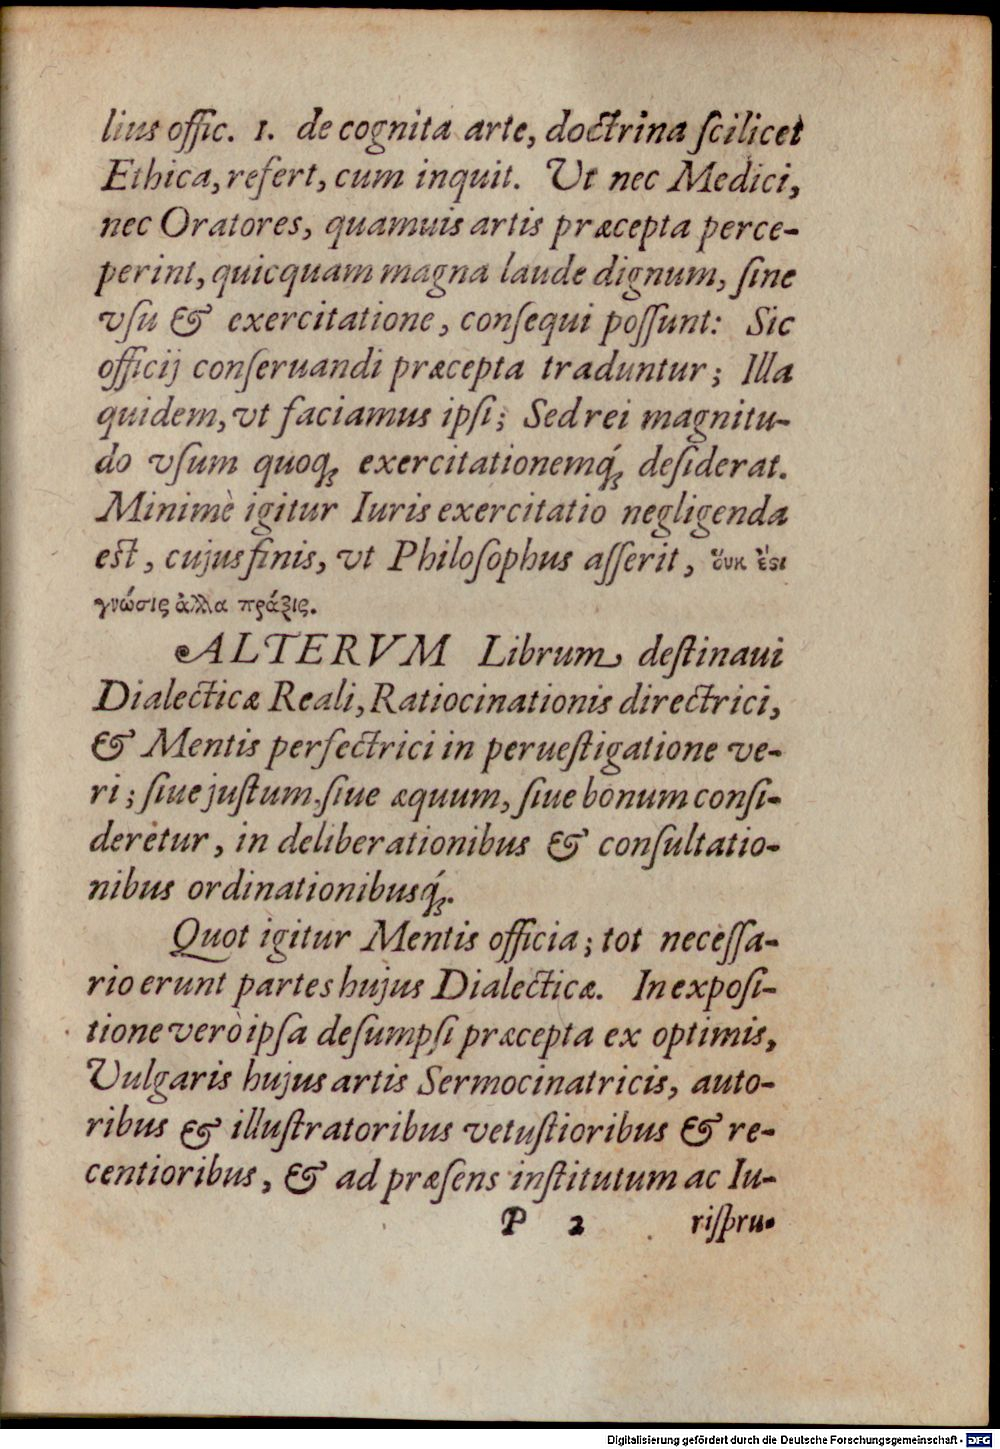 lius offic. 1. de cognita arte, doctrina ſcilicet
Ethica, refert, cum inquit. Ut nec Medici,
nec Oratores, quamuis artis præcepta perce-
perint, quicquam magna laude dignum, ſine
vſu & exercitatione, conſequi poſſunt: Sic
officij conſeruandi præcepta traduntur; Illa
quidem, vt faciamus ipſi; Sed rei magnitu-
do vſum quoq́; exercitationemq́; deſiderat.
Minimè igitur Iuris exercitatio negligenda
eſt, cujus finis, vt Philoſophus aſſerit, ὄυκ ἔϛι
γνώσις ἀλλα πράξις.
ALTERVM Librum deſtinaui
Dialecticæ Reali, Ratiocinationis directrici,
& Mentis perfectrici in perueſtigatione ve-
ri; ſiue juſtum, ſiue æquum, ſiue bonum conſi-
deretur, in deliberationibus & conſultatio-
nibus ordinationibusq́;.
Quot igitur Mentis officia; tot neceſſa-
rio erunt partes hujus Dialecticæ. In expoſi-
tione verò ipſa deſumpſi præcepta ex optimis,
Vulgaris hujus artis Sermocinatricis, auto-
ribus & illuſtratoribus vetuſtioribus & re-
centioribus, & ad præſens inſtitutum ac Iu-
P 2 riſpru-
Digitalisierung gefördert durch die Deutsche Forschungsgemeinschaft - DFG